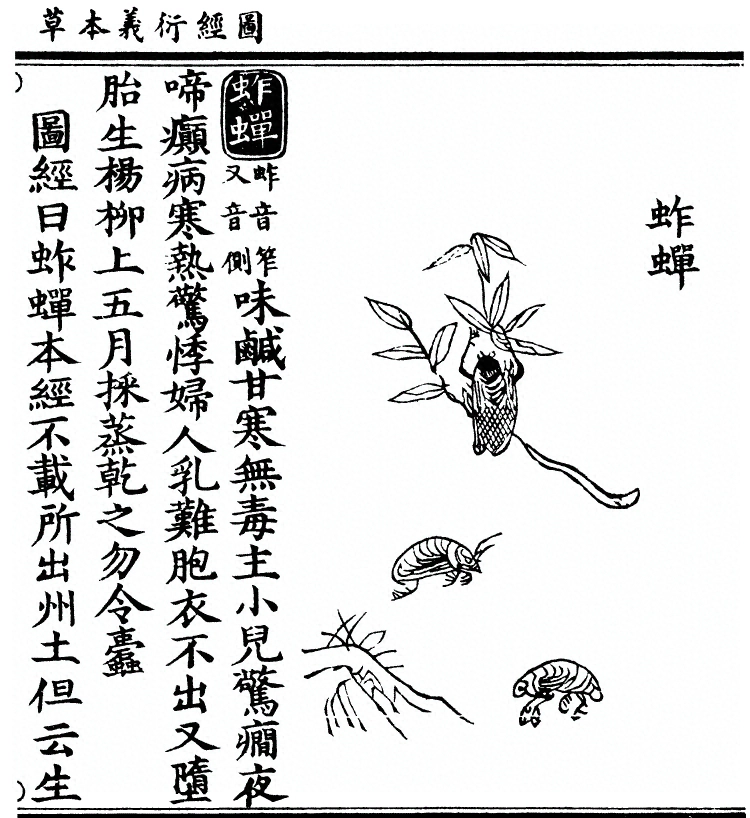 圖經衍義本草
蚱蟬
蚱蟬蚱音笮又音側味鹹甘寒無毒主小兒驚癎夜
啼癲病寒熱驚悸婦人乳難胞衣不出又墮
胎生楊柳上五月採蒸乾之勿令蠹
圖經曰蚱蟬本經不載所出州土但云生